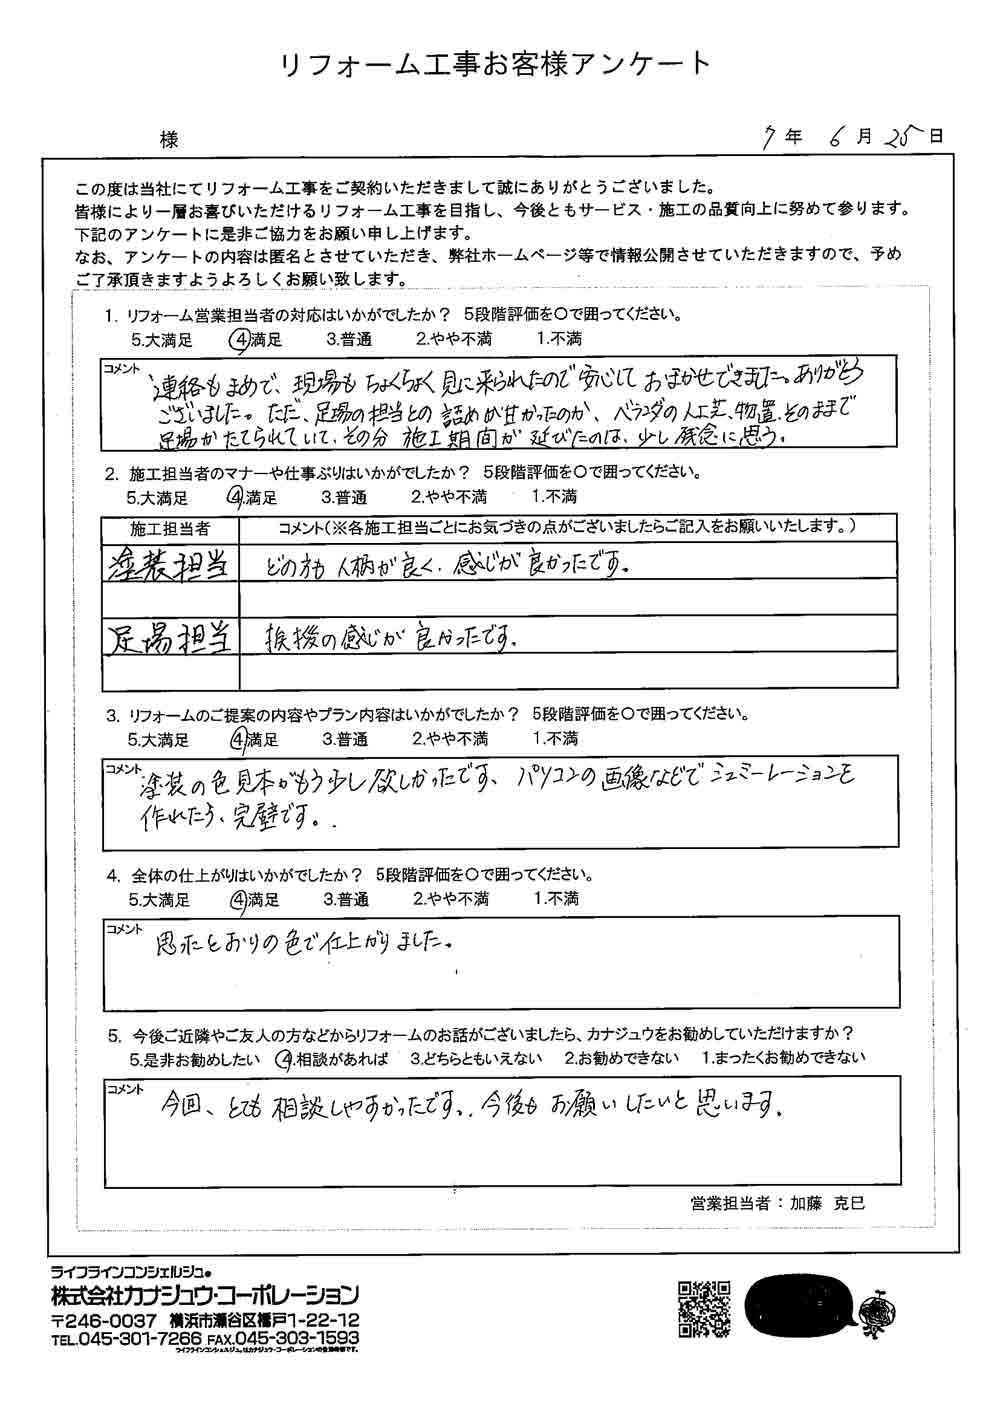 リフォーム工事お客様アンケート
様 7年 6月 25日
この度は当社にてリフォーム工事をご契約いただきまして誠にありがとうございました。
皆様により一層お喜びいただけるリフォーム工事を目指し、今後ともサービス・施工の品質向上に努めて参ります。
下記のアンケートに是非ご協力をお願い申し上げます。
なお、アンケートの内容は匿名とさせていただき、弊社ホームページ等で情報公開させていただきますので、予め
ご了承頂きますようよろしくお願い致します。
1. リフォーム営業担当者の対応はいかがでしたか? 5段階評価を○で囲ってください。
5.大満足 4.満足 3.普通 2.やや不満 1.不満
コメント
連絡もまめで、現場もちょくちょく見に来られたので安心しておまかせできました。ありがとう
ございました。ただ、足場の担当との詰めが甘かったのか、ベランダの人工芝、物置、そのままで
足場がたてられていて、その分施工期間が延びたのは、少し残念に思う。
2. 施工担当者のマナーや仕事ぶりはいかがでしたか? 5段階評価を○で囲ってください。
5.大満足 4.満足 3.普通 2.やや不満 1.不満
施工担当者 コメント(※各施工担当ごとにお気づきの点がございましたらご記入をお願いいたします。)
塗装担当 どの方も人柄が良く、感じが良かったです。
足場担当 挨拶の感じが良かったです。
3. リフォームのご提案の内容やプラン内容はいかがでしたか? 5段階評価を○で囲ってください。
5.大満足 4.満足 3.普通 2.やや不満 1.不満
コメント
塗装の色見本がもう少し欲しかったです、パソコンの画像などでシュミーレーションを
作れたら、完璧です。
4. 全体の仕上がりはいかがでしたか? 5段階評価を○で囲ってください。
5.大満足 4.満足 3.普通 2.やや不満 1.不満
コメント
思ったとおりの色で仕上がりました。
5. 今後ご近隣やご友人の方などからリフォームのお話がございましたら、カナジュウをお勧めしていただけますか?
5.是非お勧めしたい 4.相談があれば 3.どちらともいえない 2.お勧めできない 1.まったくお勧めできない
コメント
今回、とても相談しやすかったです。今後もお願いしたいと思います。
営業担当者：加藤 克巳
ライフラインコンシェルジュ。
株式会社カナジュウ・コーポレーション
〒246-0037 横浜市瀬谷区橋戸1-22-12
TEL.045-301-7266 FAX.045-303-1593
ライフラインコンシェルジュ。はカナジュウ・コーポレーションの登録商標です。